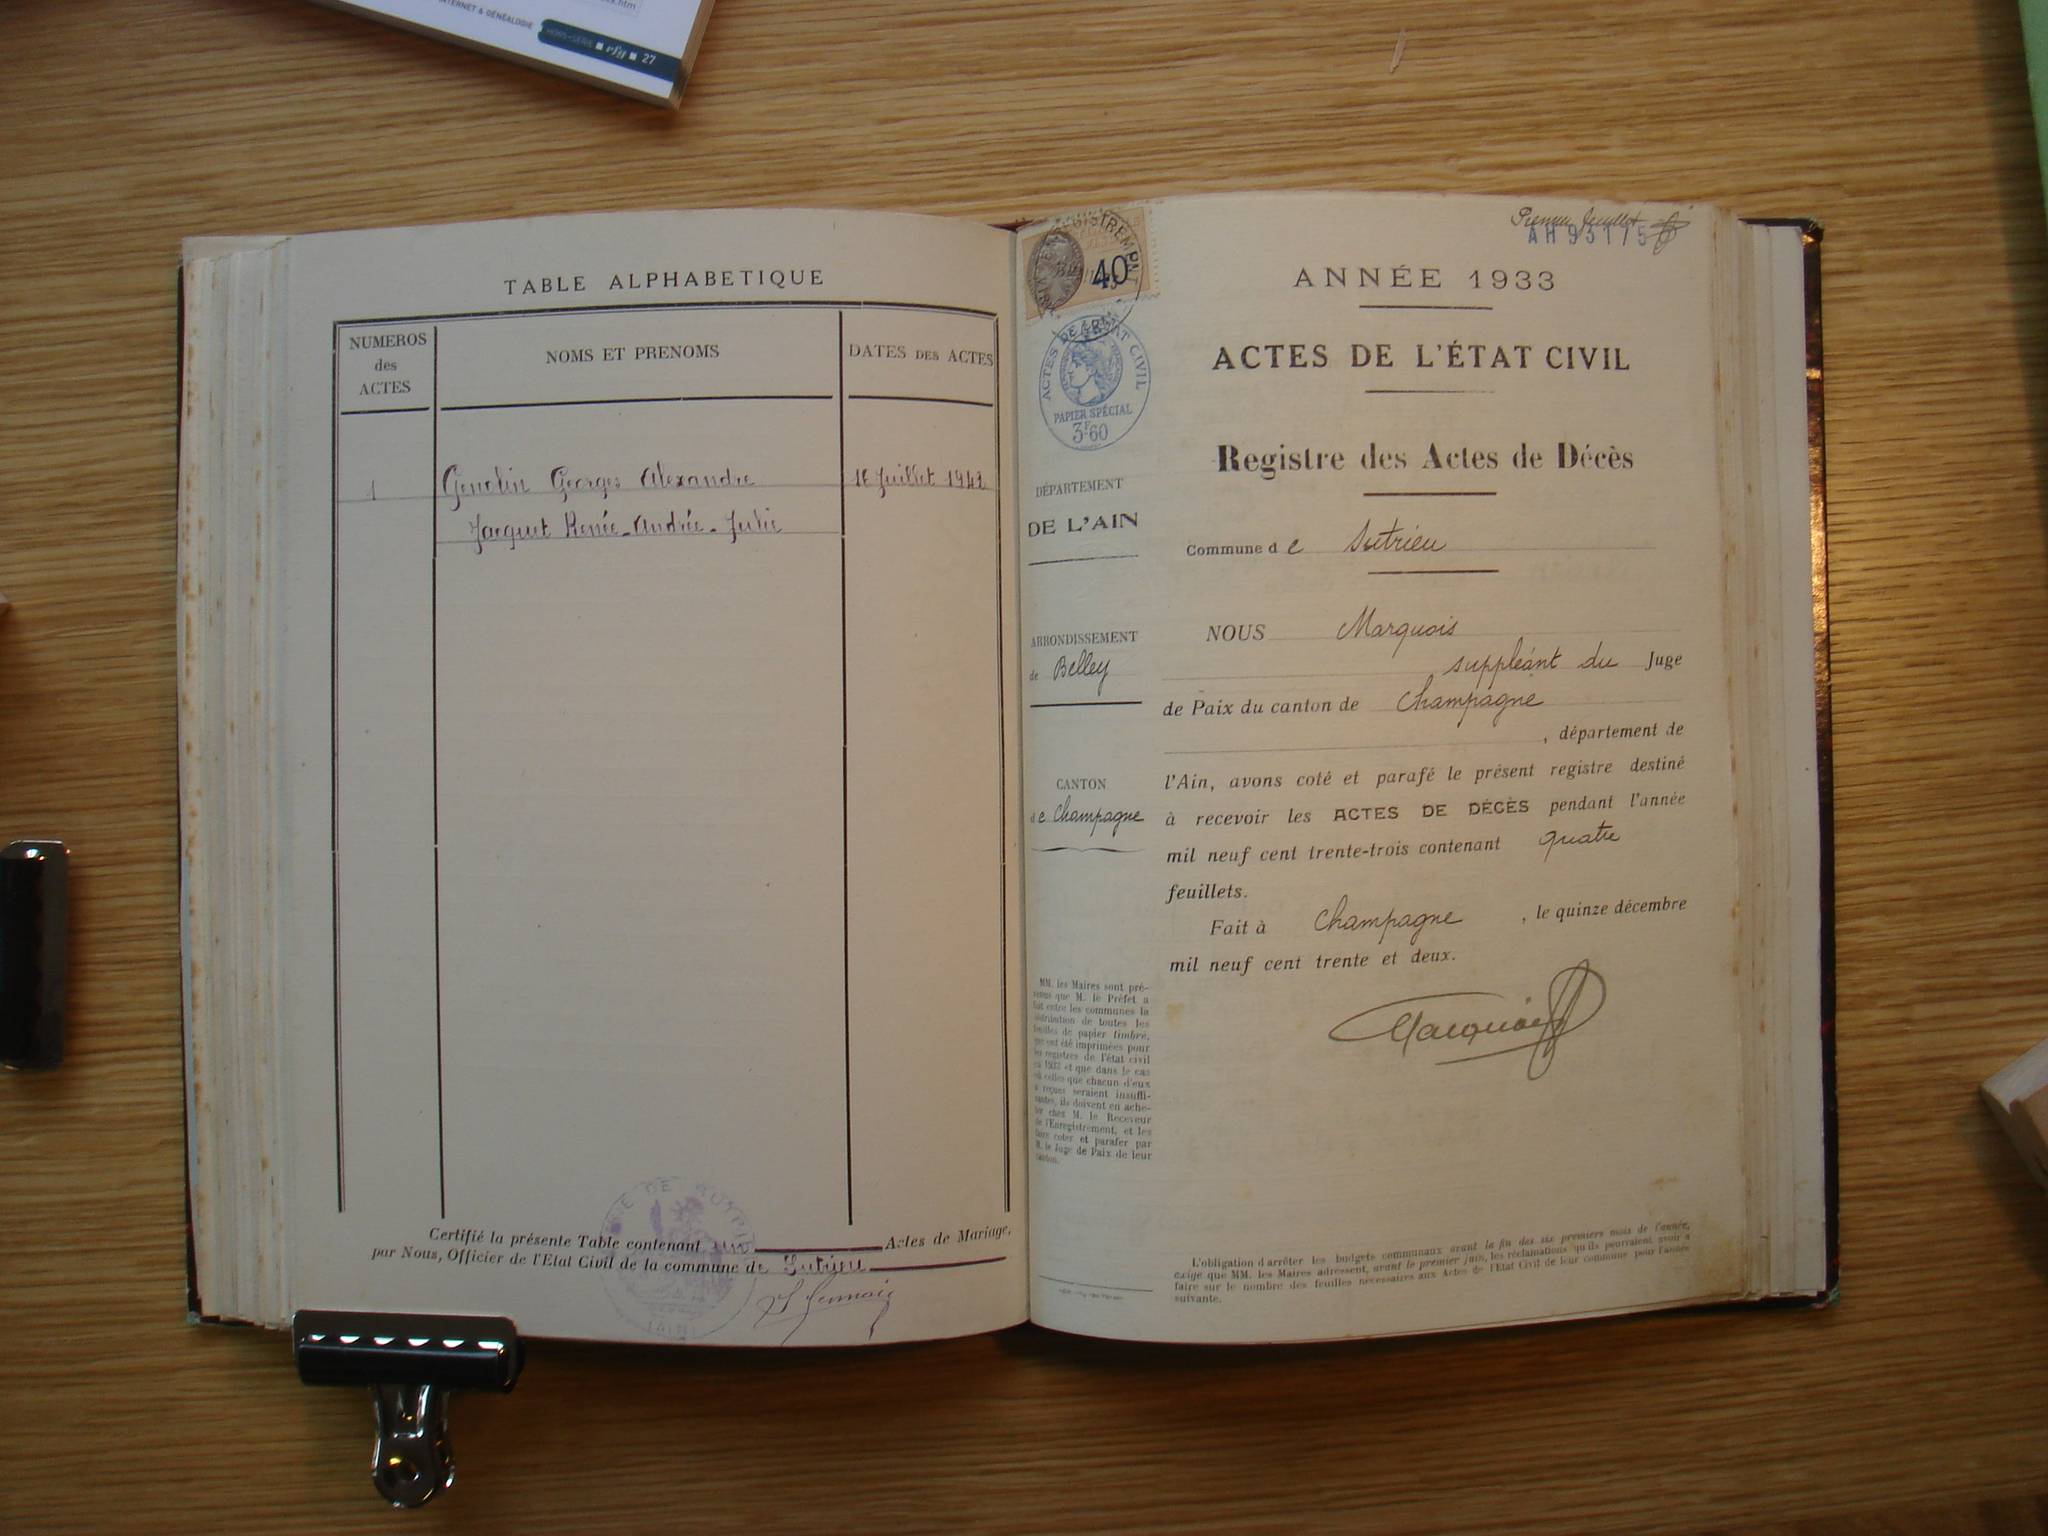 INTERNET & GÉNÉALOGIE
HORS-SÉRIE ■ rfg ■ 27
TABLE ALPHABETIQUE
NUMEROS des ACTES
NOMS ET PRENOMS
DATES DES ACTES
1 Genolin Georges Alexandre Juillet 1942
Jacquet Renée-Andrée-Julie
Certifié la présente Table contenant un Actes de Mariage,
par Nous, Officier de l'Etat Civil de la commune de Sutrieu
Premier feuillet
AH93175
40
ACTES DE L'ÉTAT CIVIL
PAPIER SPÉCIAL
3F60
DÉPARTEMENT
DE L'AIN
ARRONDISSEMENT
de Belley
CANTON
de Champagne
MM. les Maires sont pré-
venus que M. le Préfet a
fait entre les communes la
distribution de toutes les
feuilles de papier timbré,
qui ont été imprimées pour
les registres de l'état civil
en 1933 et que dans le cas
où celles que chacun d'eux
a reçues seraient insuffi-
santes, ils doivent en ache-
ter chez M. le Receveur
de l'Enregistrement, et les
faire coter et parafer par
M. le Juge de Paix de leur
canton.
ANNÉE 1933
ACTES DE L'ÉTAT CIVIL
Registre des Actes de Décès
Commune de Sutrieu
NOUS Marquois
suppléant du Juge
de Paix du canton de Champagne
, département de
l'Ain, avons coté et parafé le présent registre destiné
à recevoir les ACTES DE DÉCÈS pendant l'année
mil neuf cent trente-trois contenant quatre
feuillets.
Fait à Champagne , le quinze décembre
mil neuf cent trente et deux.
Marquois
L'obligation d'arrêter les budgets communaux avant la fin des six premiers mois de l'année,
exige que MM. les Maires adressent, avant le premier juin, les réclamations qu'ils pourraient avoir à
faire sur le nombre des feuilles nécessaires aux Actes de l'Etat Civil de leur commune pour l'année
suivante.